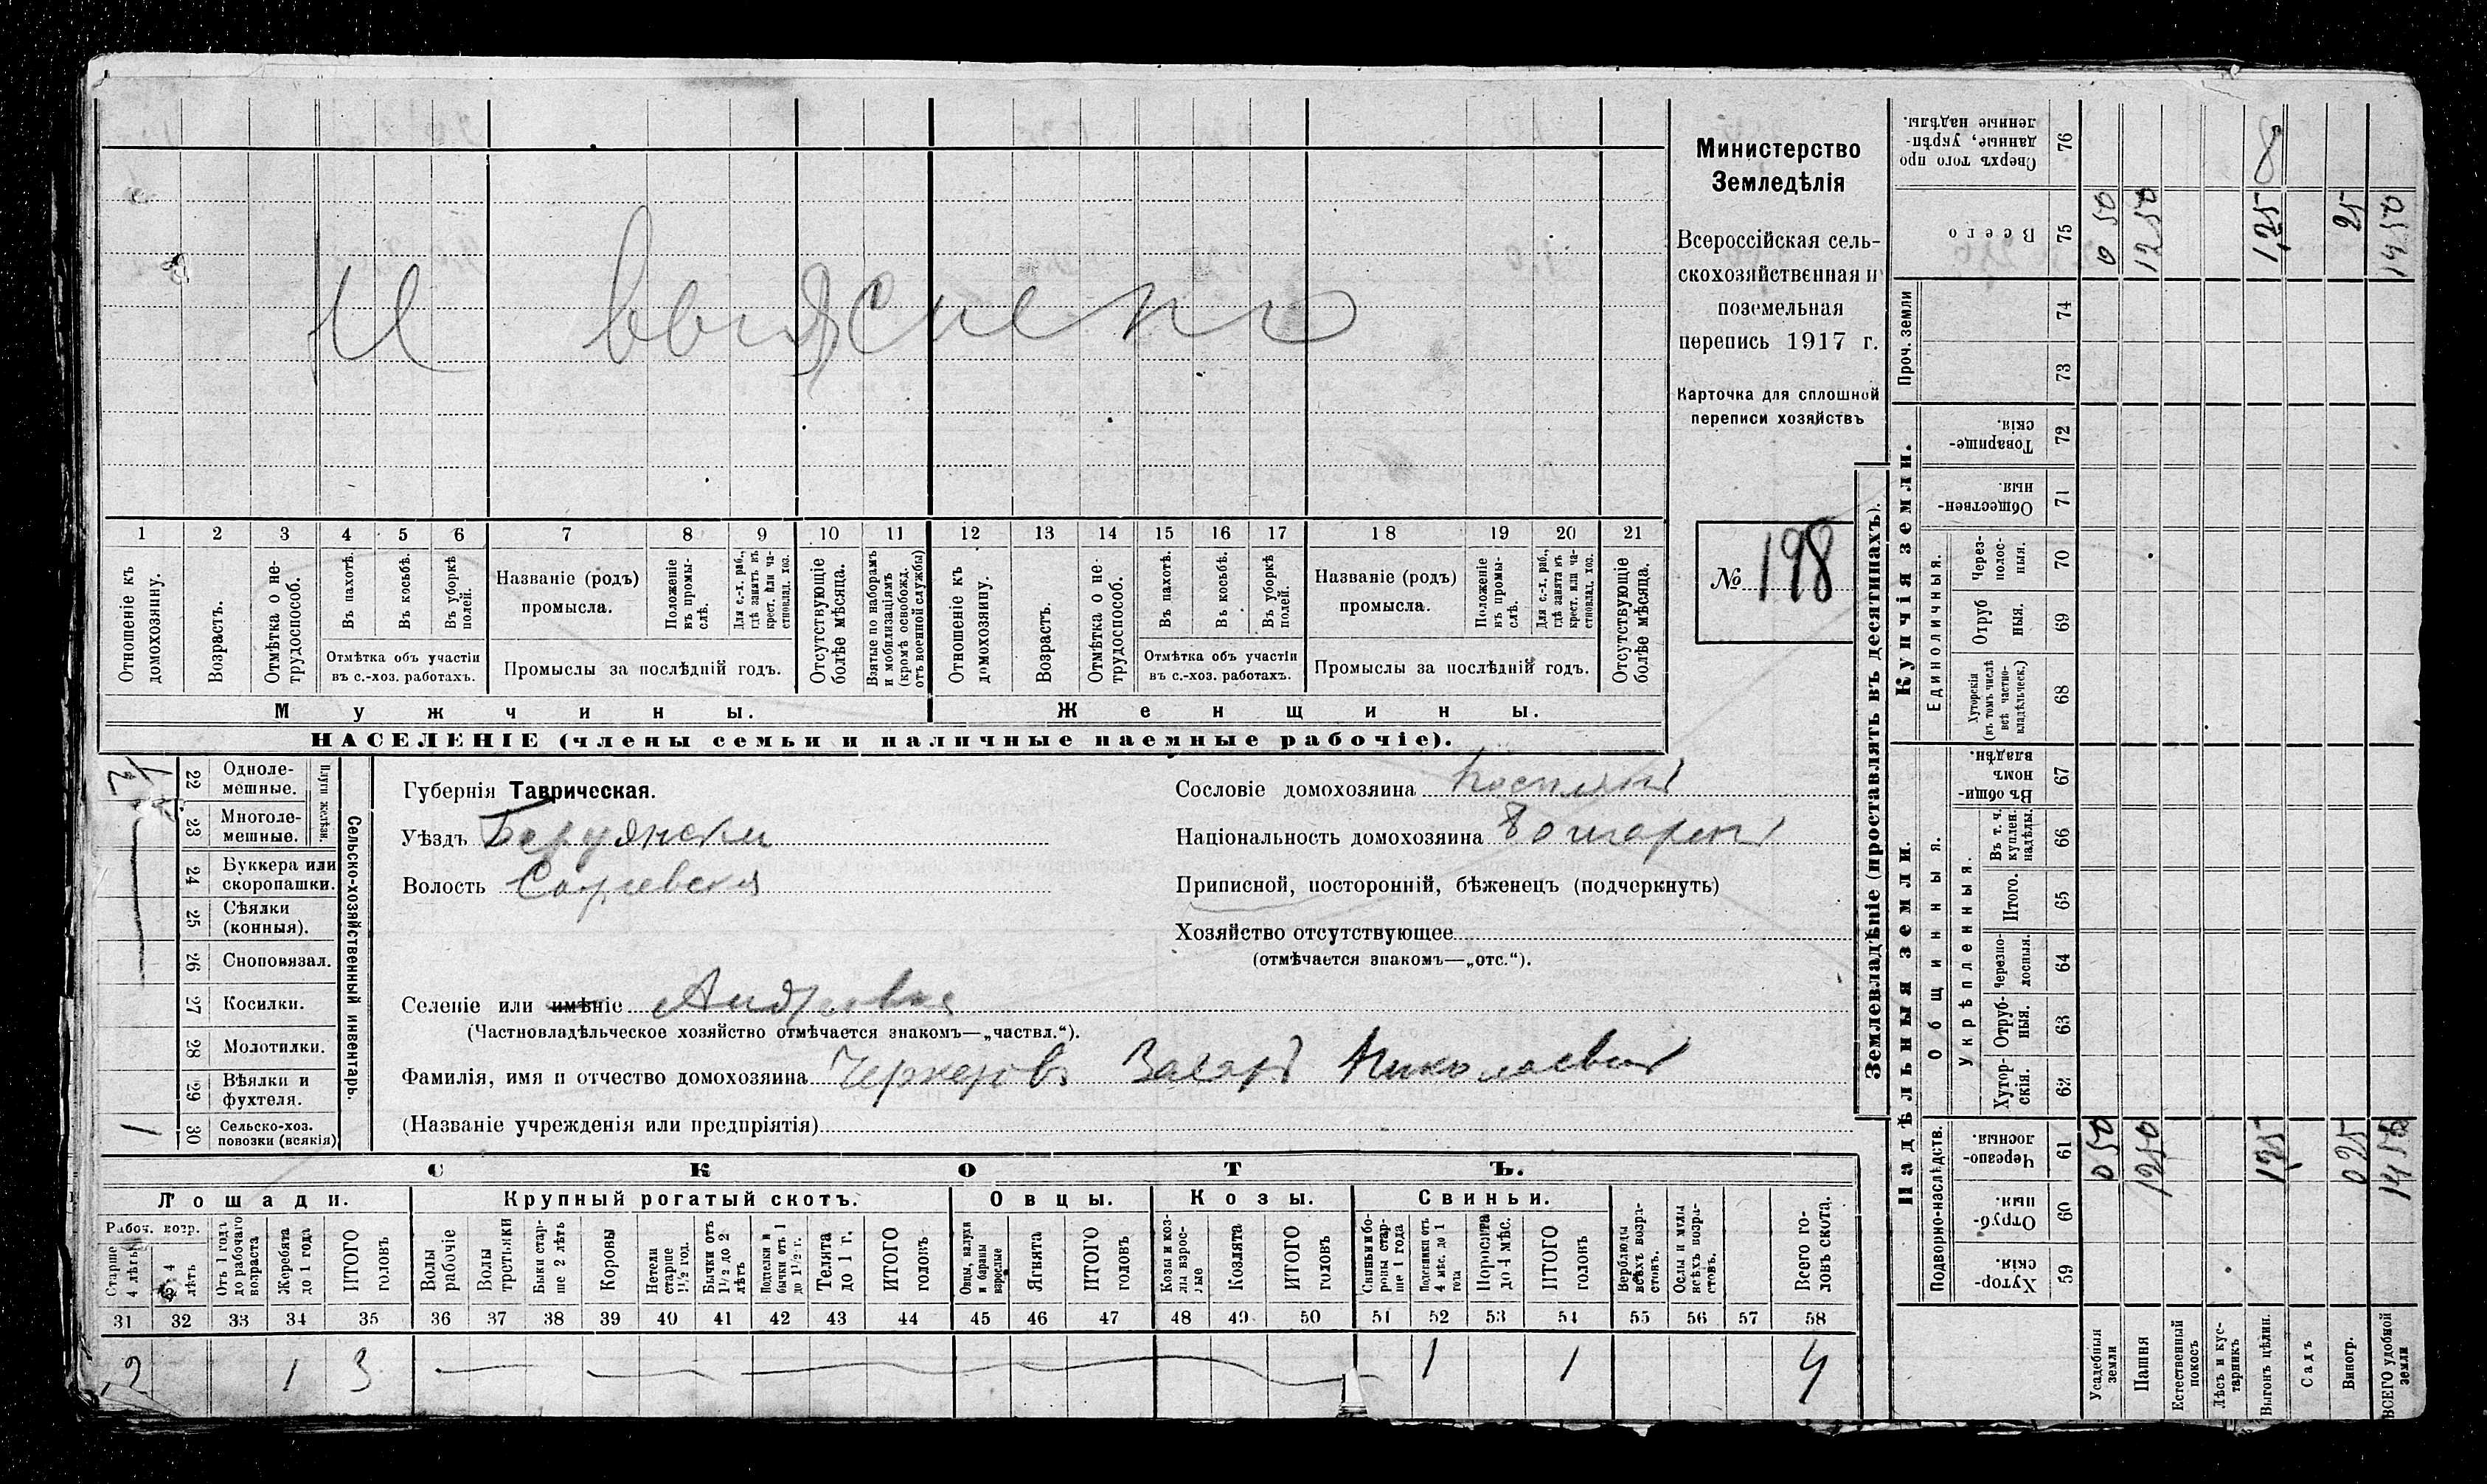 Министерство
Земледѣлія
Всероссійская сель-
скохозяйственная и
поземельная
перепись 1917 г.
Карточка для сплошной
переписи хозяйствъ
№ 198
1 2 3 4 5 6 7 8 9 10 11 12 13 14 15 16 17 18 19 20 21
Отношеніе къ домохозяину.
Возрастъ.
Отмѣтка о не-трудоспособ.
Въ пахотѣ.
Въ косьбѣ.
Въ уборкѣ полей.
Отмѣтка объ участіи
въ с.-хоз. работахъ.
Названіе (родъ)
промысла.
Положеніе въ промы-слѣ.
Для с.-х. раб., гдѣ занятъ въ крест. или ча-стновлад. хоз.
Промыслы за послѣдній годъ.
Отсутствующіе болѣе мѣсяца.
Взятые по наборамъ и мобилизаціямъ (кромѣ освобожд. отъ военной службы)
Отношеніе къ домохозяину.
Возрастъ.
Отмѣтка о не-трудоспособ.
Въ пахотѣ.
Въ косьбѣ.
Въ уборкѣ полей.
Отмѣтка объ участіи
въ с.-хоз. работахъ.
Названіе (родъ)
промысла.
Положеніе въ промы-слѣ.
Для с.-х. раб., гдѣ занята въ крест. или ча-стновлад. хоз.
Промыслы за послѣдній годъ.
Отсутствующіе болѣе мѣсяца.
Мужчины.
Женщины.
НАСЕЛЕНІЕ (члены семьи и наличные наемные рабочіе).
Сельско-хозяйственный инвентарь.
Плуги желѣзн.
22 Одноле-мешные.
23 Многоле-мешные.
24 Буккера или скоропашки.
25 Сѣялки (конныя).
26 Сноповязал.
27 Косилки.
28 Молотилки.
29 Вѣялки и фухтеля.
30 Сельско-хоз. повозки (всякія) 1
Губернія Таврическая.
Уѣздъ Бердянскій
Волость
Селеніе или имѣніе Андровка
(Частновладѣльческое хозяйство отмѣчается знакомъ—„частвл.“).
Фамилія, имя и отчество домохозяина Захаръ Николаевичъ
(Названіе учрежденія или предпріятія)
Сословіе домохозяина
Національность домохозяина
Приписной, посторонній, бѣженецъ (подчеркнуть)
Хозяйство отсутствующее
(отмѣчается знакомъ—„отс.“).
СКОТЪ.
Лошади.
Крупный рогатый скотъ.
Овцы.
Козы.
Свиньи.
Рабоч. возр.
Старше 4 лѣтъ
4 лѣтъ
Отъ 1 года до рабочаго возраста
Жеребята до 1 года
ИТОГО головъ
Волы рабочіе
Волы третьяки
Быки стар-ше 2 лѣтъ
Коровы
Нетели старше 1½ год.
Бычки отъ 1½ до 2 лѣтъ
Подтелки и бычки отъ 1 до 1½ г.
Телята до 1 г.
ИТОГО головъ
Овцы, валухи и бараны взрослые
Ягнята
ИТОГО головъ
Козы и коз-лы взрос-лые
Козлята
ИТОГО головъ
Свиньи и бо-ровы стар-ше 1 года
Подсвинки отъ 4 мѣс. до 1 года
Поросята до 4 мѣс.
ИТОГО головъ
Верблюды всѣхъ возра-стовъ.
Ослы и мулы всѣхъ возра-стовъ.
Всего го-ловъ скота.
31 32 33 34 35 36 37 38 39 40 41 42 43 44 45 46 47 48 49 50 51 52 53 54 55 56 57 58
2 1 3 1 1 4
Землевладѣніе (проставлять въ десятинахъ).
Надѣльныя земли.
Купчія земли.
Проч. земли
Подворно-наслѣдств.
Общинныя.
Укрѣпленныя.
Единоличныя.
59 Хутор-скія.
60 Отруб-ныя.
61 Черезпо-лосныя.
62 Хутор-скія.
63 Отруб-ныя.
64 Черезпо-лосныя.
65 Итого.
66 Въ т. ч. куплен. надѣлы.
67 Въ общи-номъ владѣн.
68 Хуторскія (въ томъ числѣ всѣ частно-владѣльческ.)
69 Отруб ныя.
70 Через-полос-ныя.
71 Обществен-ныя.
72 Товарище-скія.
73
74
75 Всего
76 Сверхъ того про данные, укрѣп-ленные надѣлы.
Усадебныя земли 050 0 50
Пашня 1250 12 50
Естественный покосъ
Лѣсъ и кус-тарникъ
Выгонъ цѣлин. 1,25 1,25 8
Садъ
Виногр. 025 25
ВСЕГО удобной земли 1450 14 50